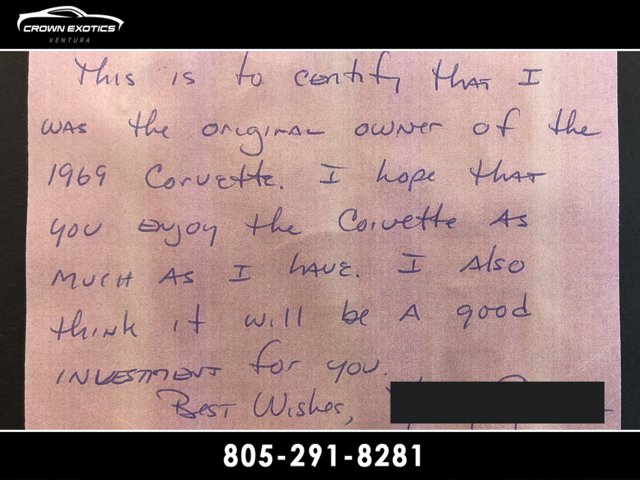 CROWN EXOTICS
VENTURA
This is to certify that I
was the original owner of the
1969 Corvette. I hope that
you enjoy the Corvette as
much as I have. I also
think it will be a good
investment for you.
Best Wishes,
805-291-8281